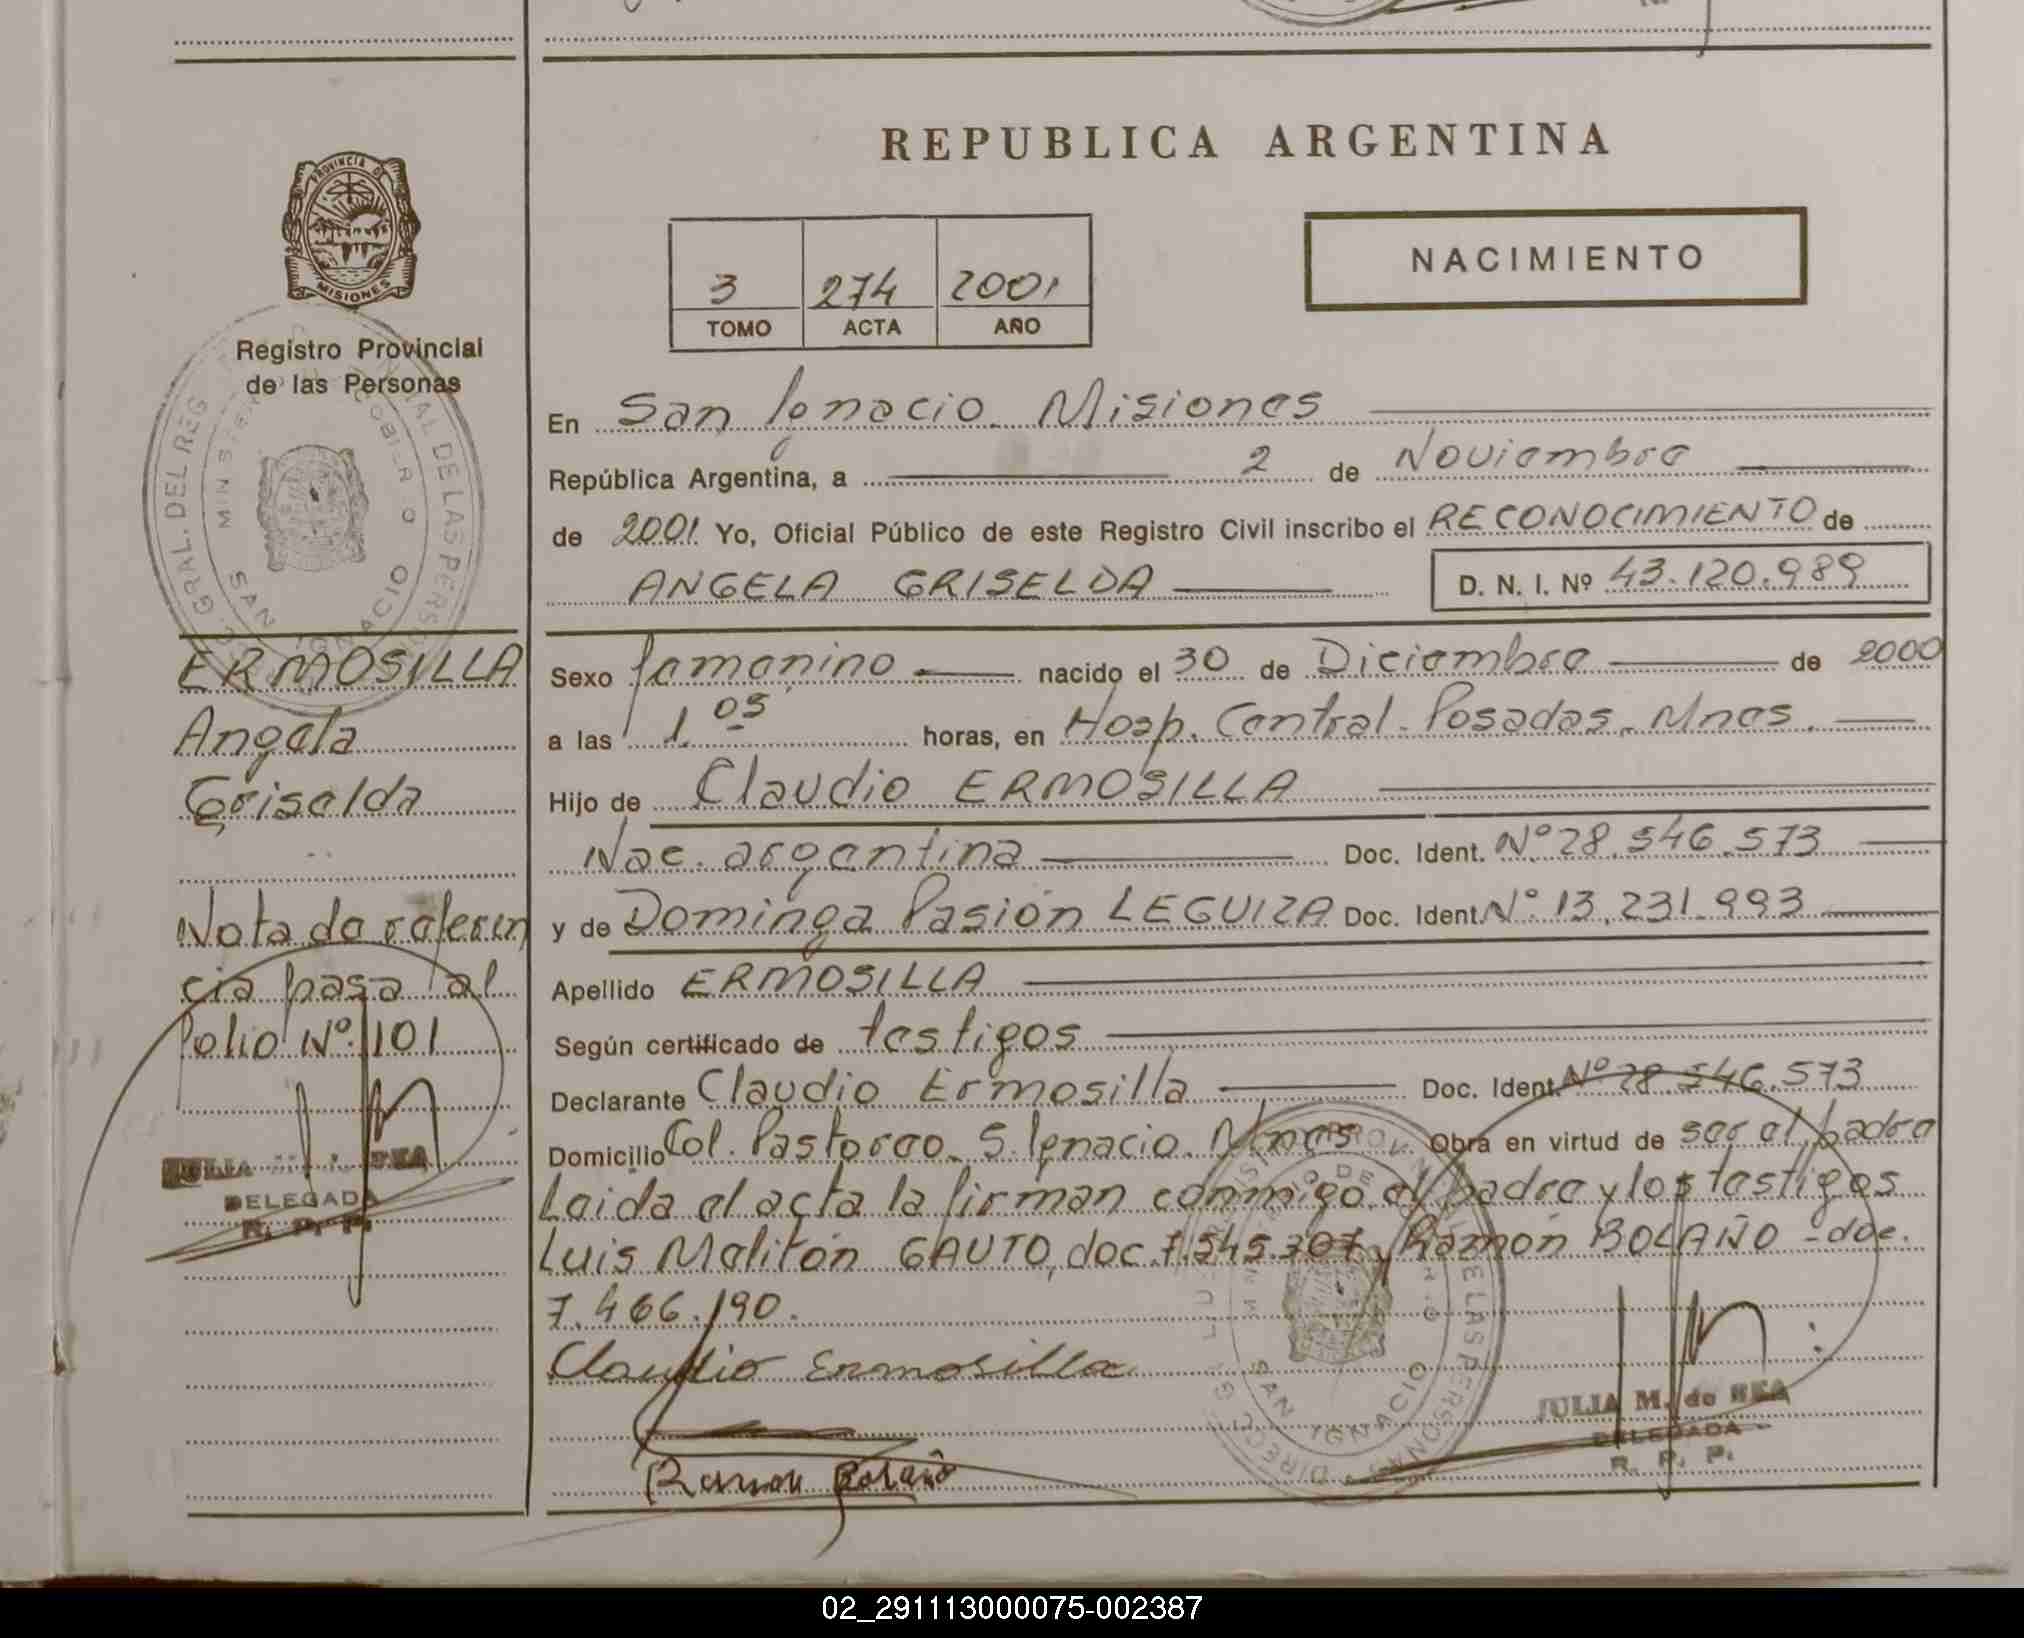 REPUBLICA ARGENTINA
PROVINCIA DE
MISIONES
Registro Provincial
de las Personas
3 274 2001
TOMO ACTA AÑO
NACIMIENTO
En San Ignacio. Misiones
República Argentina, a 2 de Noviembre
de 2001 Yo, Oficial Público de este Registro Civil inscribo el RECONOCIMIENTO de
ANGELA GRISELDA D. N. I. Nº 43.120.989
ERMOSILLA
Angela
Griselda
Nota de referen
cia pasa al
folio Nº 101
DELEGADA
R. P. P.
Sexo femenino nacido el 30 de Diciembre de 2000
a las 1.05 horas, en Hosp. Central. Posadas. Mnes.
Hijo de Claudio ERMOSILLA
Nac. argentina Doc. Ident. Nº 28.546.573
y de Dominga Pasión LEGUIZA Doc. Ident. Nº 13.231.993
Apellido ERMOSILLA
Según certificado de testigos
Declarante Claudio Ermosilla Doc. Ident. Nº 28.546.573
Domicilio Col. Pastoreo. S. Ignacio. Mnes Obra en virtud de ser el padre
Leida el acta la firman conmigo el padre y los testigos
Luis Meliton GAUTO, doc. 7.545.307 y Ramón BOLAÑO - doc.
7.466.190.
Claudio Ermosilla
Ramon Bolaño
JULIA M. de REA
DELEGADA
R. P. P.
SAN IGNACIO
02_291113000075-002387